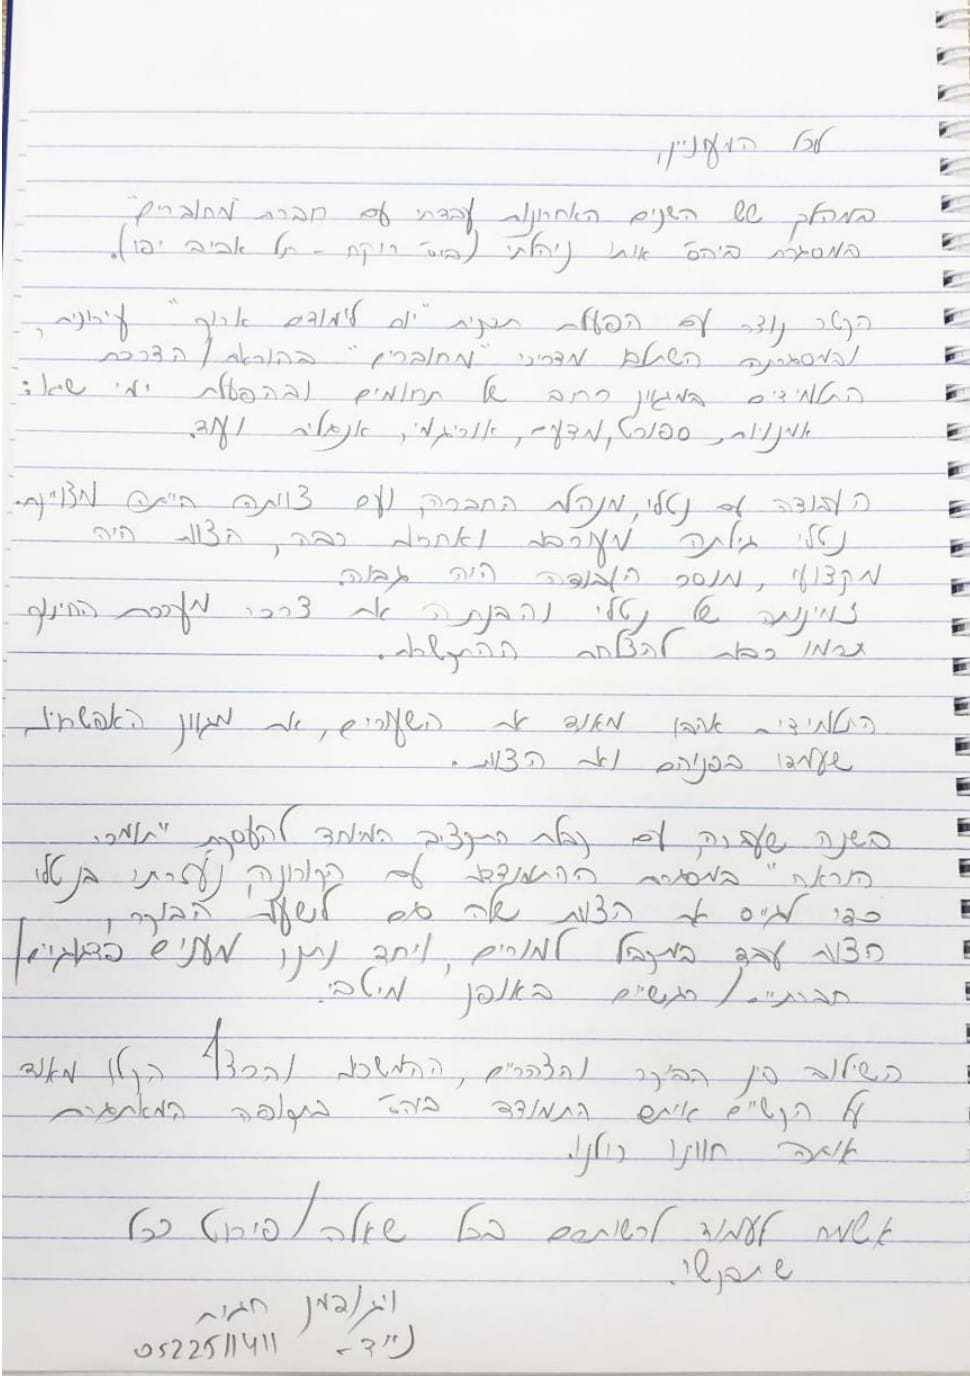 לכל המעוניין,
במהלך שש השנים האחרונות עבדתי עם חברת "מחוברים"
במסגרת ביה"ס אותו ניהלתי (ביה"ס רוקח - תל אביב יפו).
הקשר נוצר עם הפעלת תכנית "יום לימודים ארוך" עירונית,
ובמסגרתה השתלבו מדריכי "מחוברים" בהוראת/הדרכת
התלמידים במגוון רחב של תחומים ובהפעלת ימי שיא:
אמנויות, ספורט, מדעים, אוריגמי, אנגלית ועוד.
העבודה עם נטלי, מנהלת החברה, ועם צוותה הייתה מצויינת.
נטלי גילתה מעורבות ואחריות רבה, הצוות היה
מקצועי, מוסר העבודה היה גבוה.
זמינותה של נטלי והבנתה את צרכי מערכת החינוך
תרמו רבות להצלחת ההתקשרות.
התלמידים אהבו מאוד את השעורים, את מגוון האפשרויות
שעמדו בפניהם ואת הצוות.
בשנה שעברה, עם קבלת התקציב המיוחד להעסקת "תומכי
הוראה" במסגרת ההתמודדות עם הקורונה, נעזרתי בנטלי
כדי לגייס את הצוות שלה גם לשעות הבוקר,
הצוות עבד במקביל למורים, ויחד נתנו מענים פדגוגיים/
חברתיים/רגשיים באופן מיטבי.
השילוב בין הבוקר והצהריים, ההמשכיות והרצף הקלו מאוד
על הקשיים איתם התמודד ביה"ס בתקופה המאתגרת
אותה חווינו כולנו.
אשמח לעמוד לרשותכם בכל שאלה/פירוט ככל
שתבקשו.
חגית
נייד- 0522511411